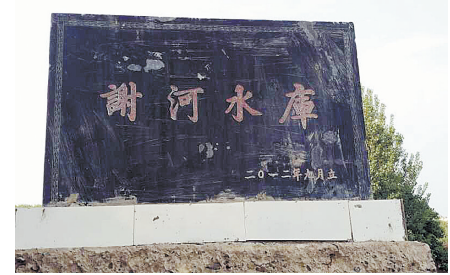 謝河水庫
二〇一二年九月立